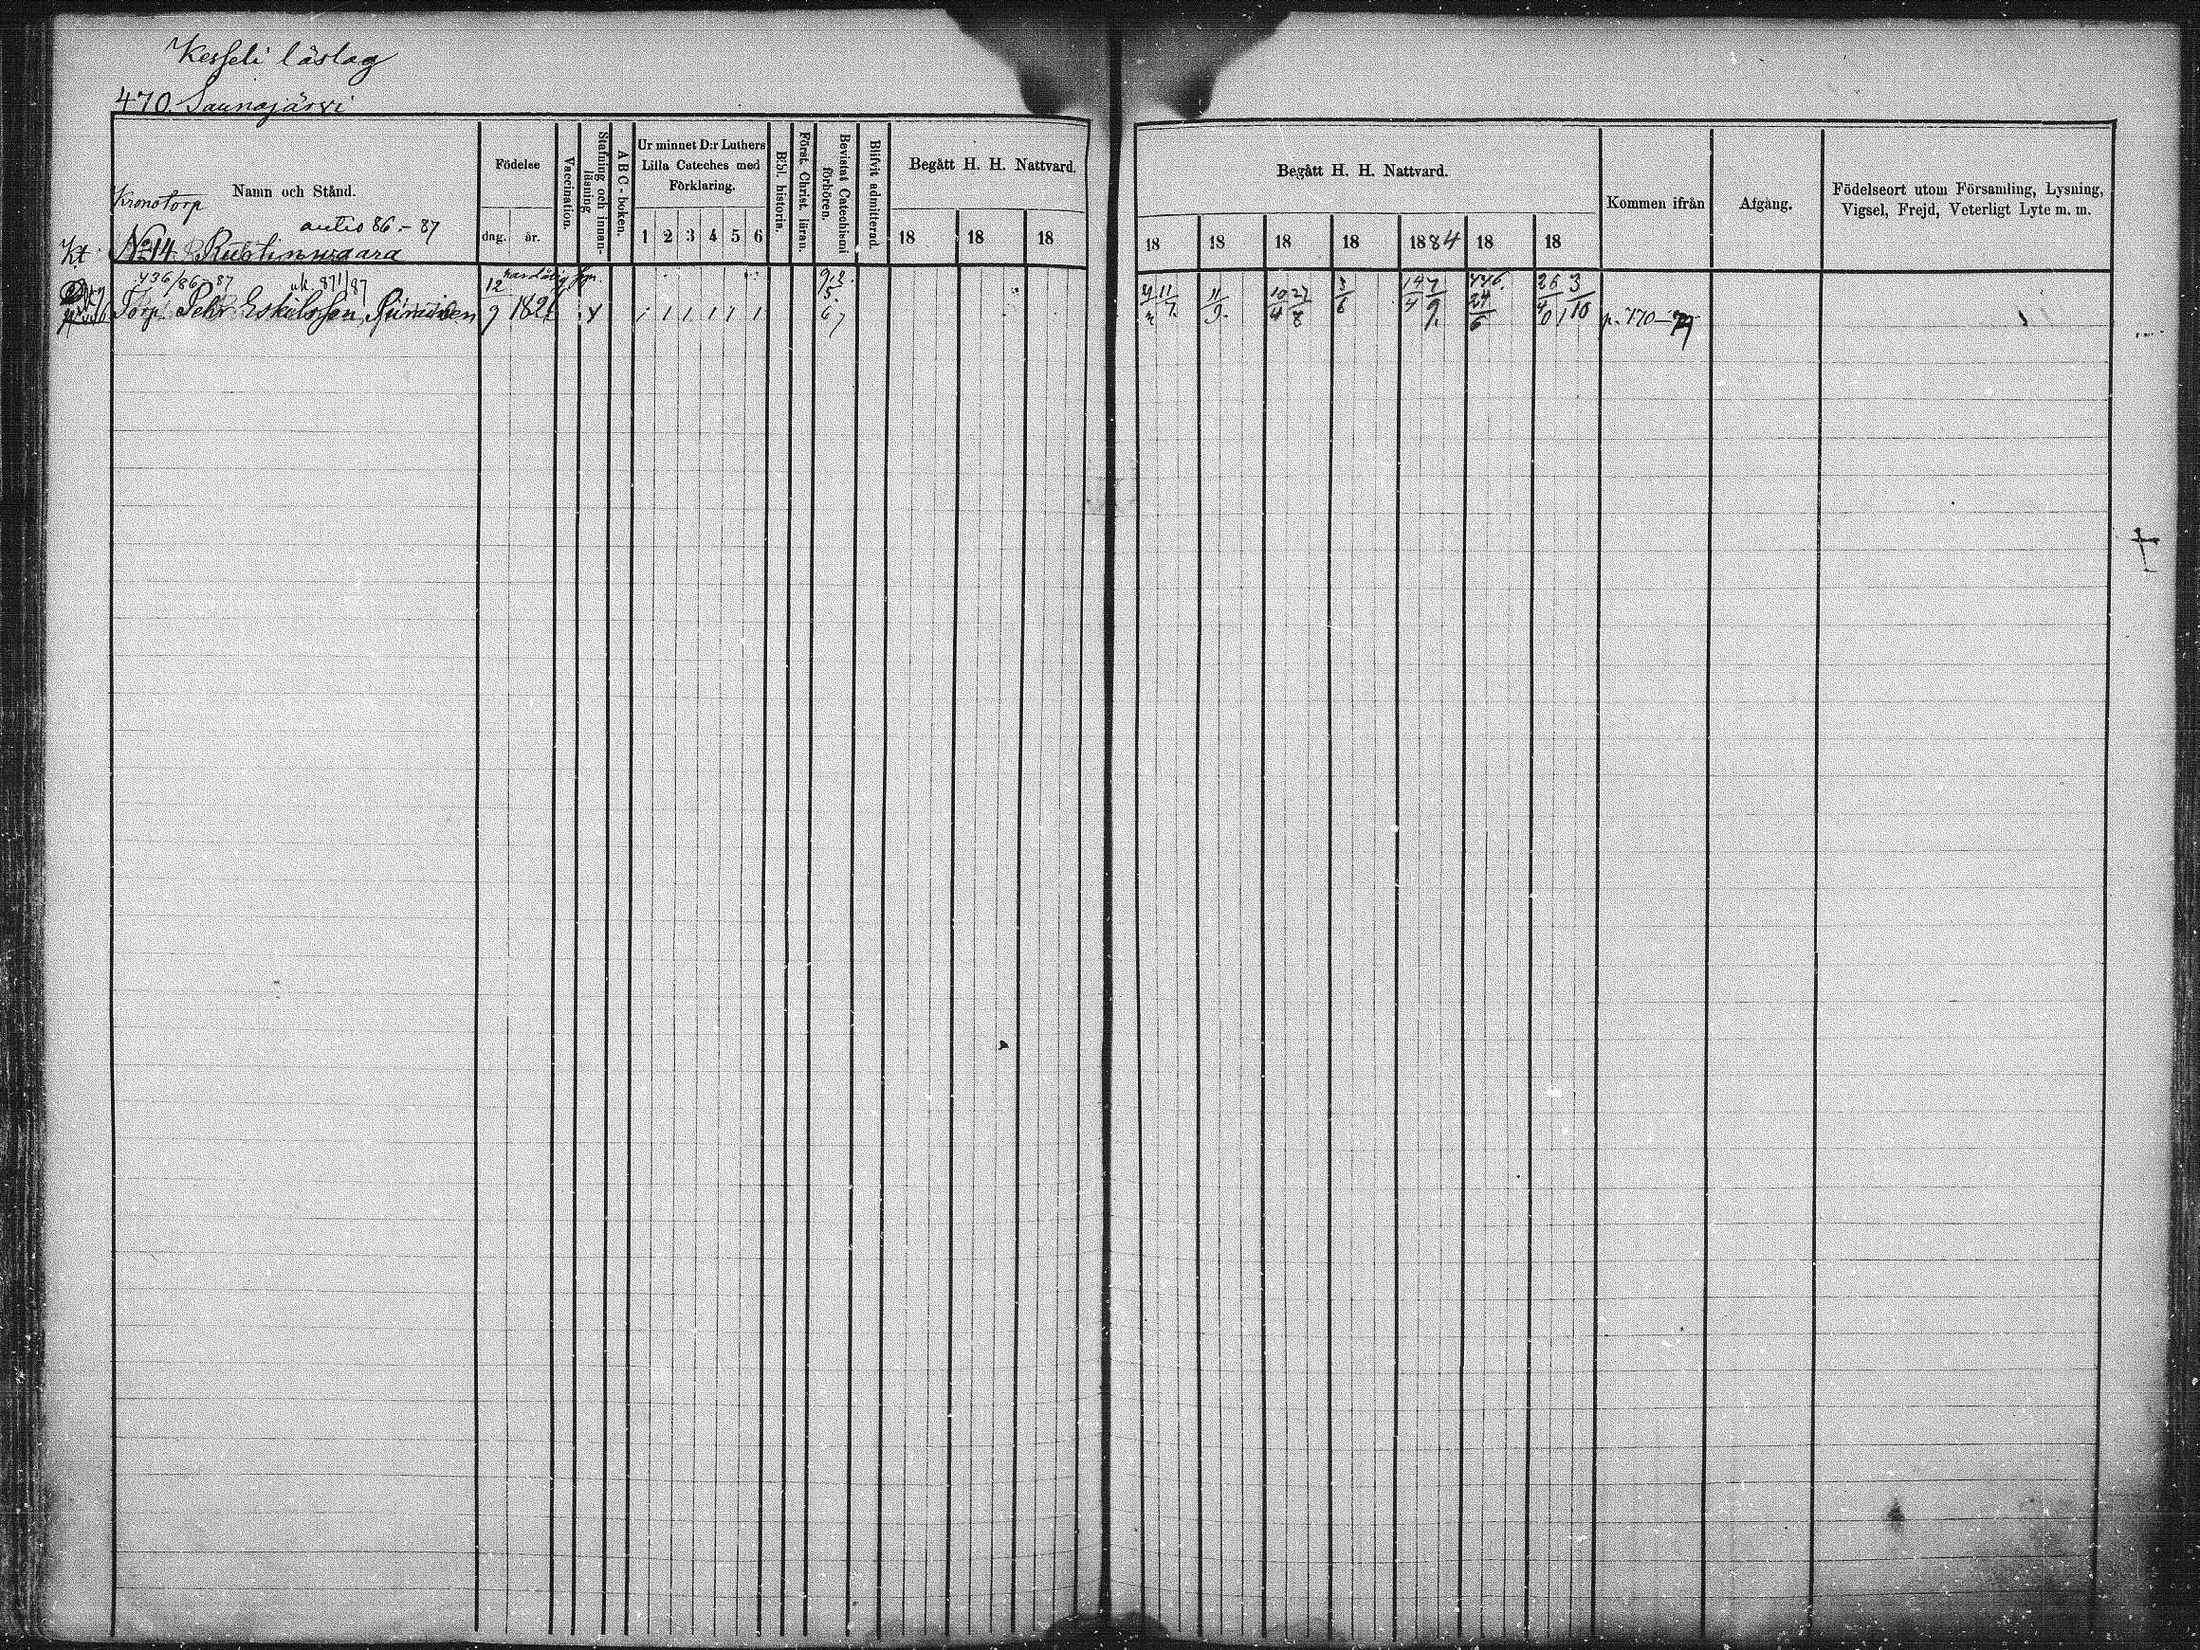 Kesseli läslag
470. Saunajärvi
Namn och Stånd.
Kronotorp
autio 86.-87
Kt. No 14 Rustinwaara
Födelse
dag. år.
Vaccination.
Stafning och innanläsning
ABC-boken.
Ur minnet D:r Luthers Lilla Cateches med Förklaring.
1 2 3 4 5 6
Bibl. historia.
Först. Christ. läran.
Bevistat Catechismi förhören.
Blifvit admitterad.
Begått H. H. Nattvard.
18 18 18
Begått H. H. Nattvard.
18 18 18 18 1884 18 18
Kommen ifrån
Afgång.
Födelseort utom Församling, Lysning, Vigsel, Frejd, Veterligt Lyte m. m.
436/86-87 uk. 871/87
Torp. Pehr Eskilsson 12/9 1 1 1 1 1 11/9 10/4 27/8 14/4 7/9 24/6 26/4 3/10 p. 170-79